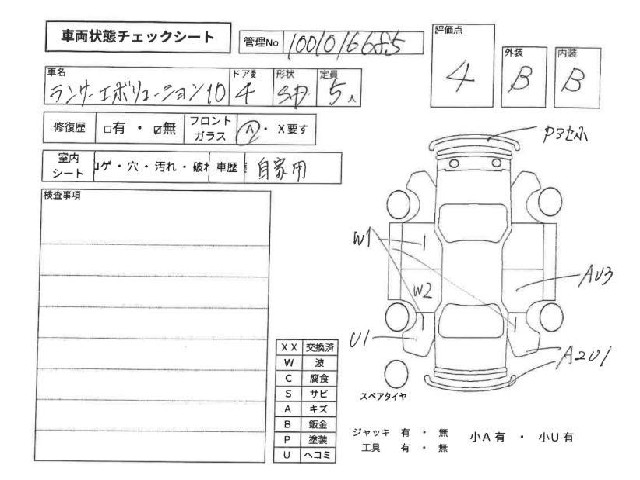 車両状態チェックシート
管理No 1001016685
評価点 4
外装 B
内装 B
車名 ランサーエボリューション10
ドア数 4
形状 SD
定員 5人
修復歴 □有・☑無
フロントガラス A・X要す
室内シート コゲ・穴・汚れ・破れ
車歴 自家用
検査事項
W1
W2
U1
AU3
A2U1
XX 交換済
W 波
C 腐食
S サビ
A キズ
B 鈑金
P 塗装
U ヘコミ
スペアタイヤ
ジャッキ 有・無
工具 有・無
小A有・小U有